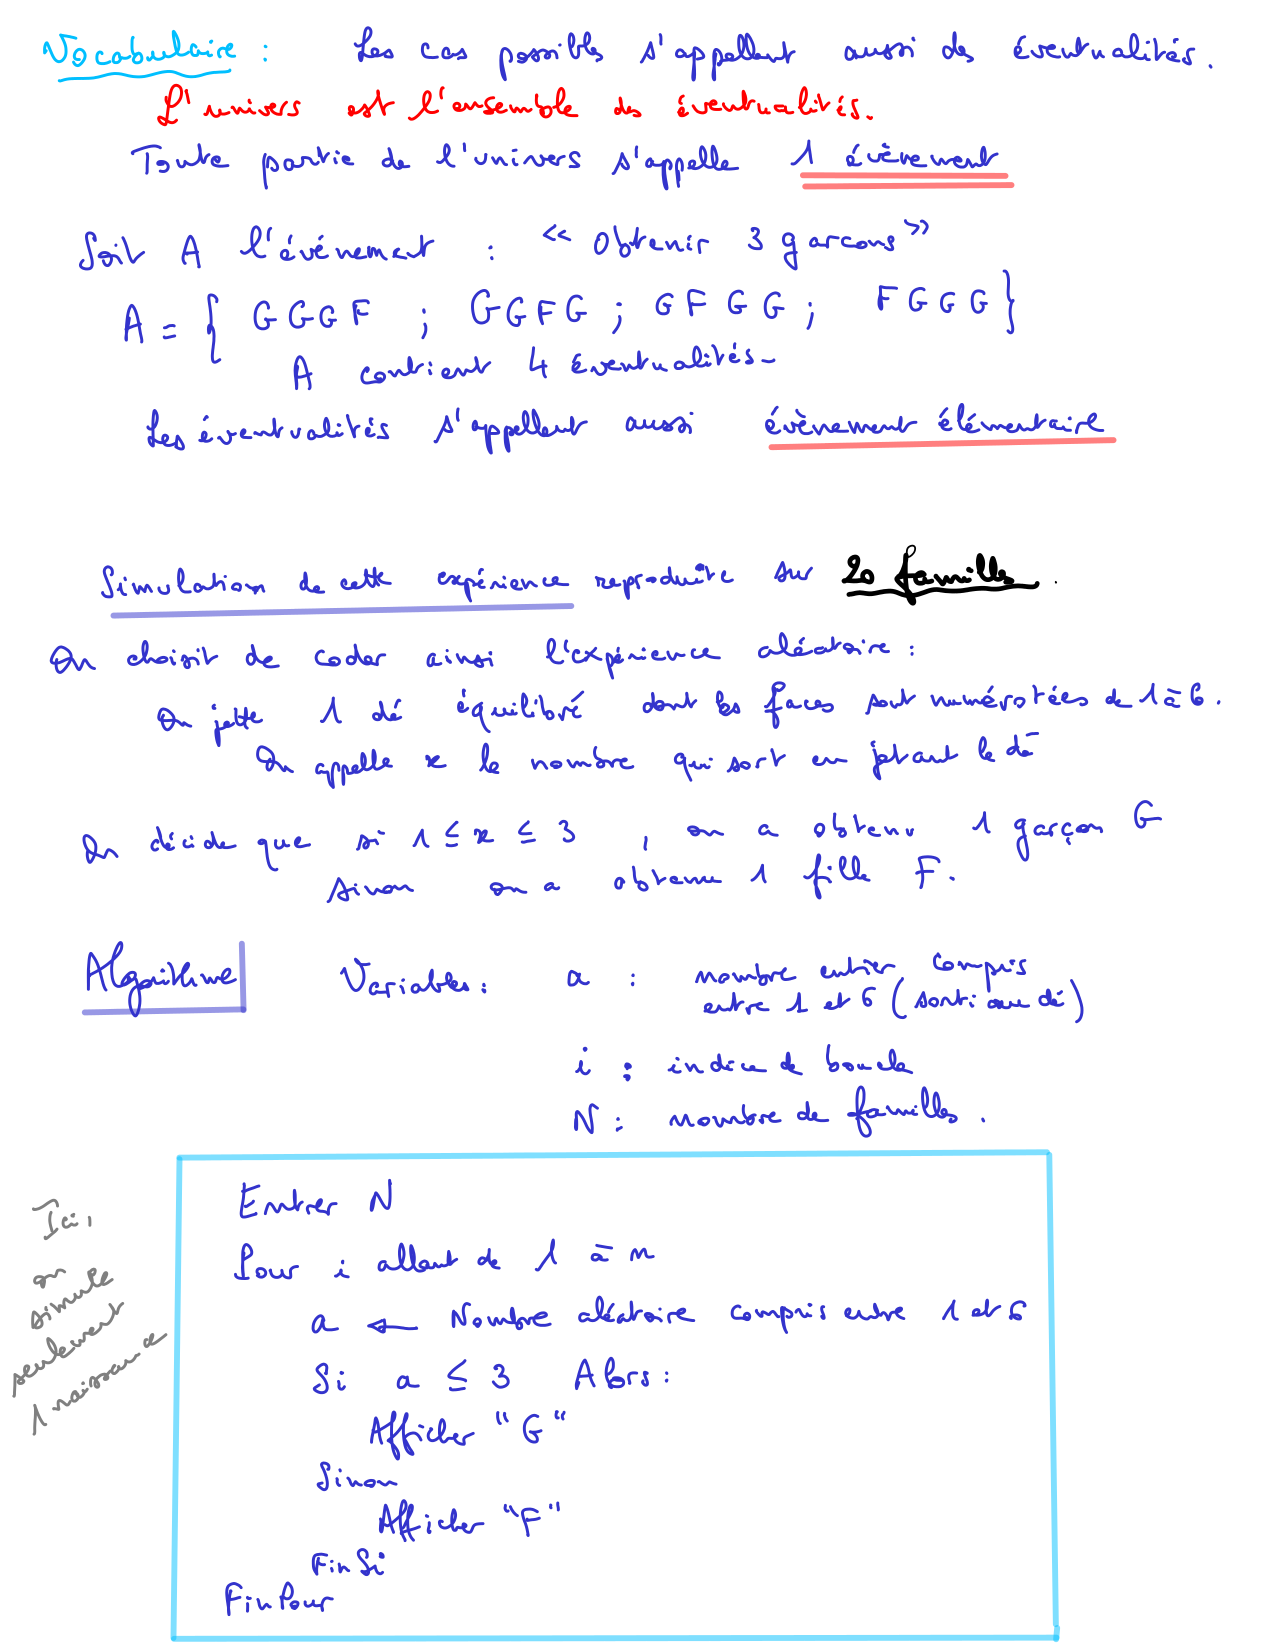 Vocabulaire : Les cas possibles s'appellent aussi des éventualités.
L'univers est l'ensemble des éventualités.
Toute partie de l'univers s'appelle 1 évènement
Soit A l'événement : << Obtenir 3 garcons >>
A = { G G G F ; G G F G ; G F G G ; F G G G }
A contient 4 éventualités.
Les éventualités s'appellent aussi évènement élémentaire
Simulation de cette expérience reproduite sur 20 familles.
On choisit de coder ainsi l'expérience aléatoire :
On jette 1 dé équilibré dont les faces sont numérotées de 1 à 6.
On appelle x le nombre qui sort en jetant le dé
On décide que si 1 ≤ x ≤ 3 , on a obtenu 1 garçon G
sinon on a obtenu 1 fille F.
Algorithme Variables : a : nombre entier compris
entre 1 et 6 (sorti au dé)
i : indice de boucle
N : nombre de familles.
Entrer N
Pour i allant de 1 à n
a ← Nombre aléatoire compris entre 1 et 6
Si a ≤ 3 Alors :
Afficher "G"
Sinon
Afficher "F"
Fin Si
Fin Pour
Ici,
on
simule
seulement
1 naissance